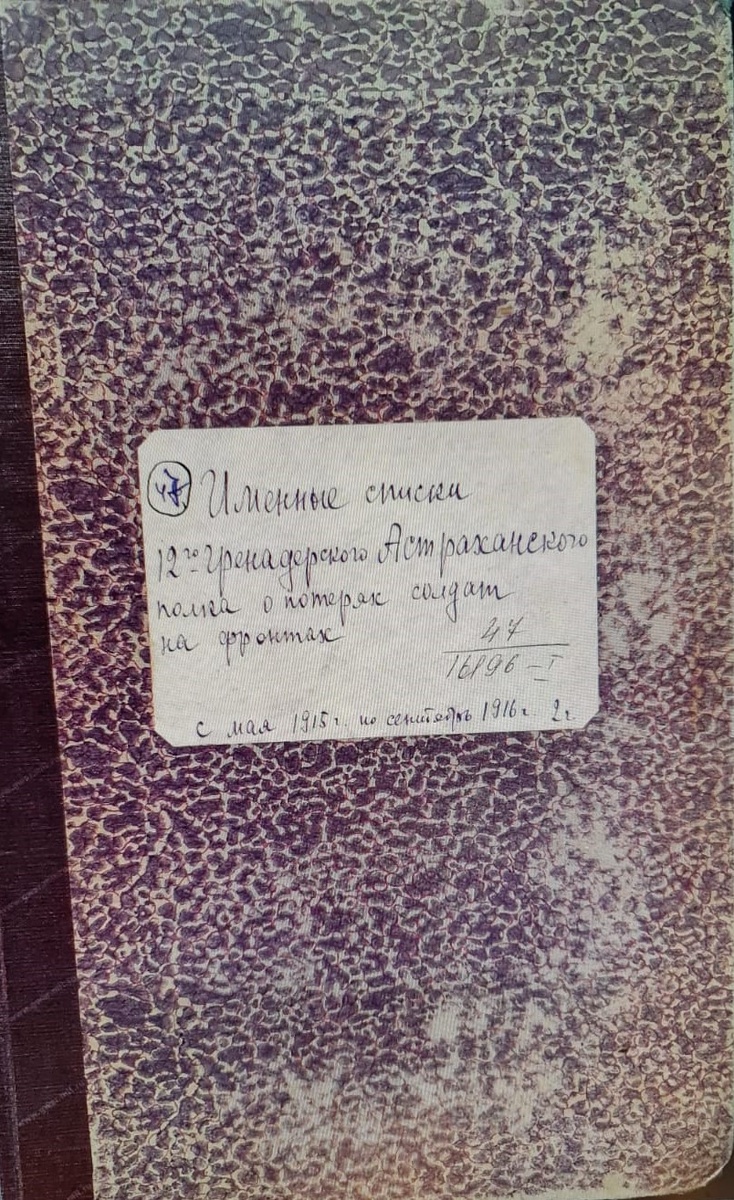 47 Именные списки
12го Гренадерского Астраханского
полка о потерях солдат
на фронтах
47
16196-I
с мая 1915 г. по сентябрь 1916 г. 2г.